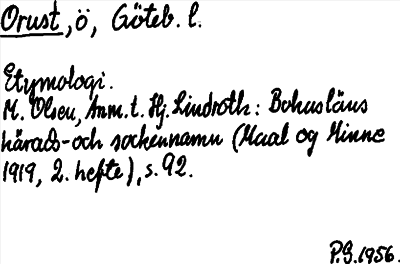 Orust, ö, Göteb. l.
Etymologi.
M. Olsen, Anm. t. Hj. Lindroth: Bohusläns
härads- och sockennamn (Maal og Minne
1919, 2. hefte), s. 92.
P.G. 1956.